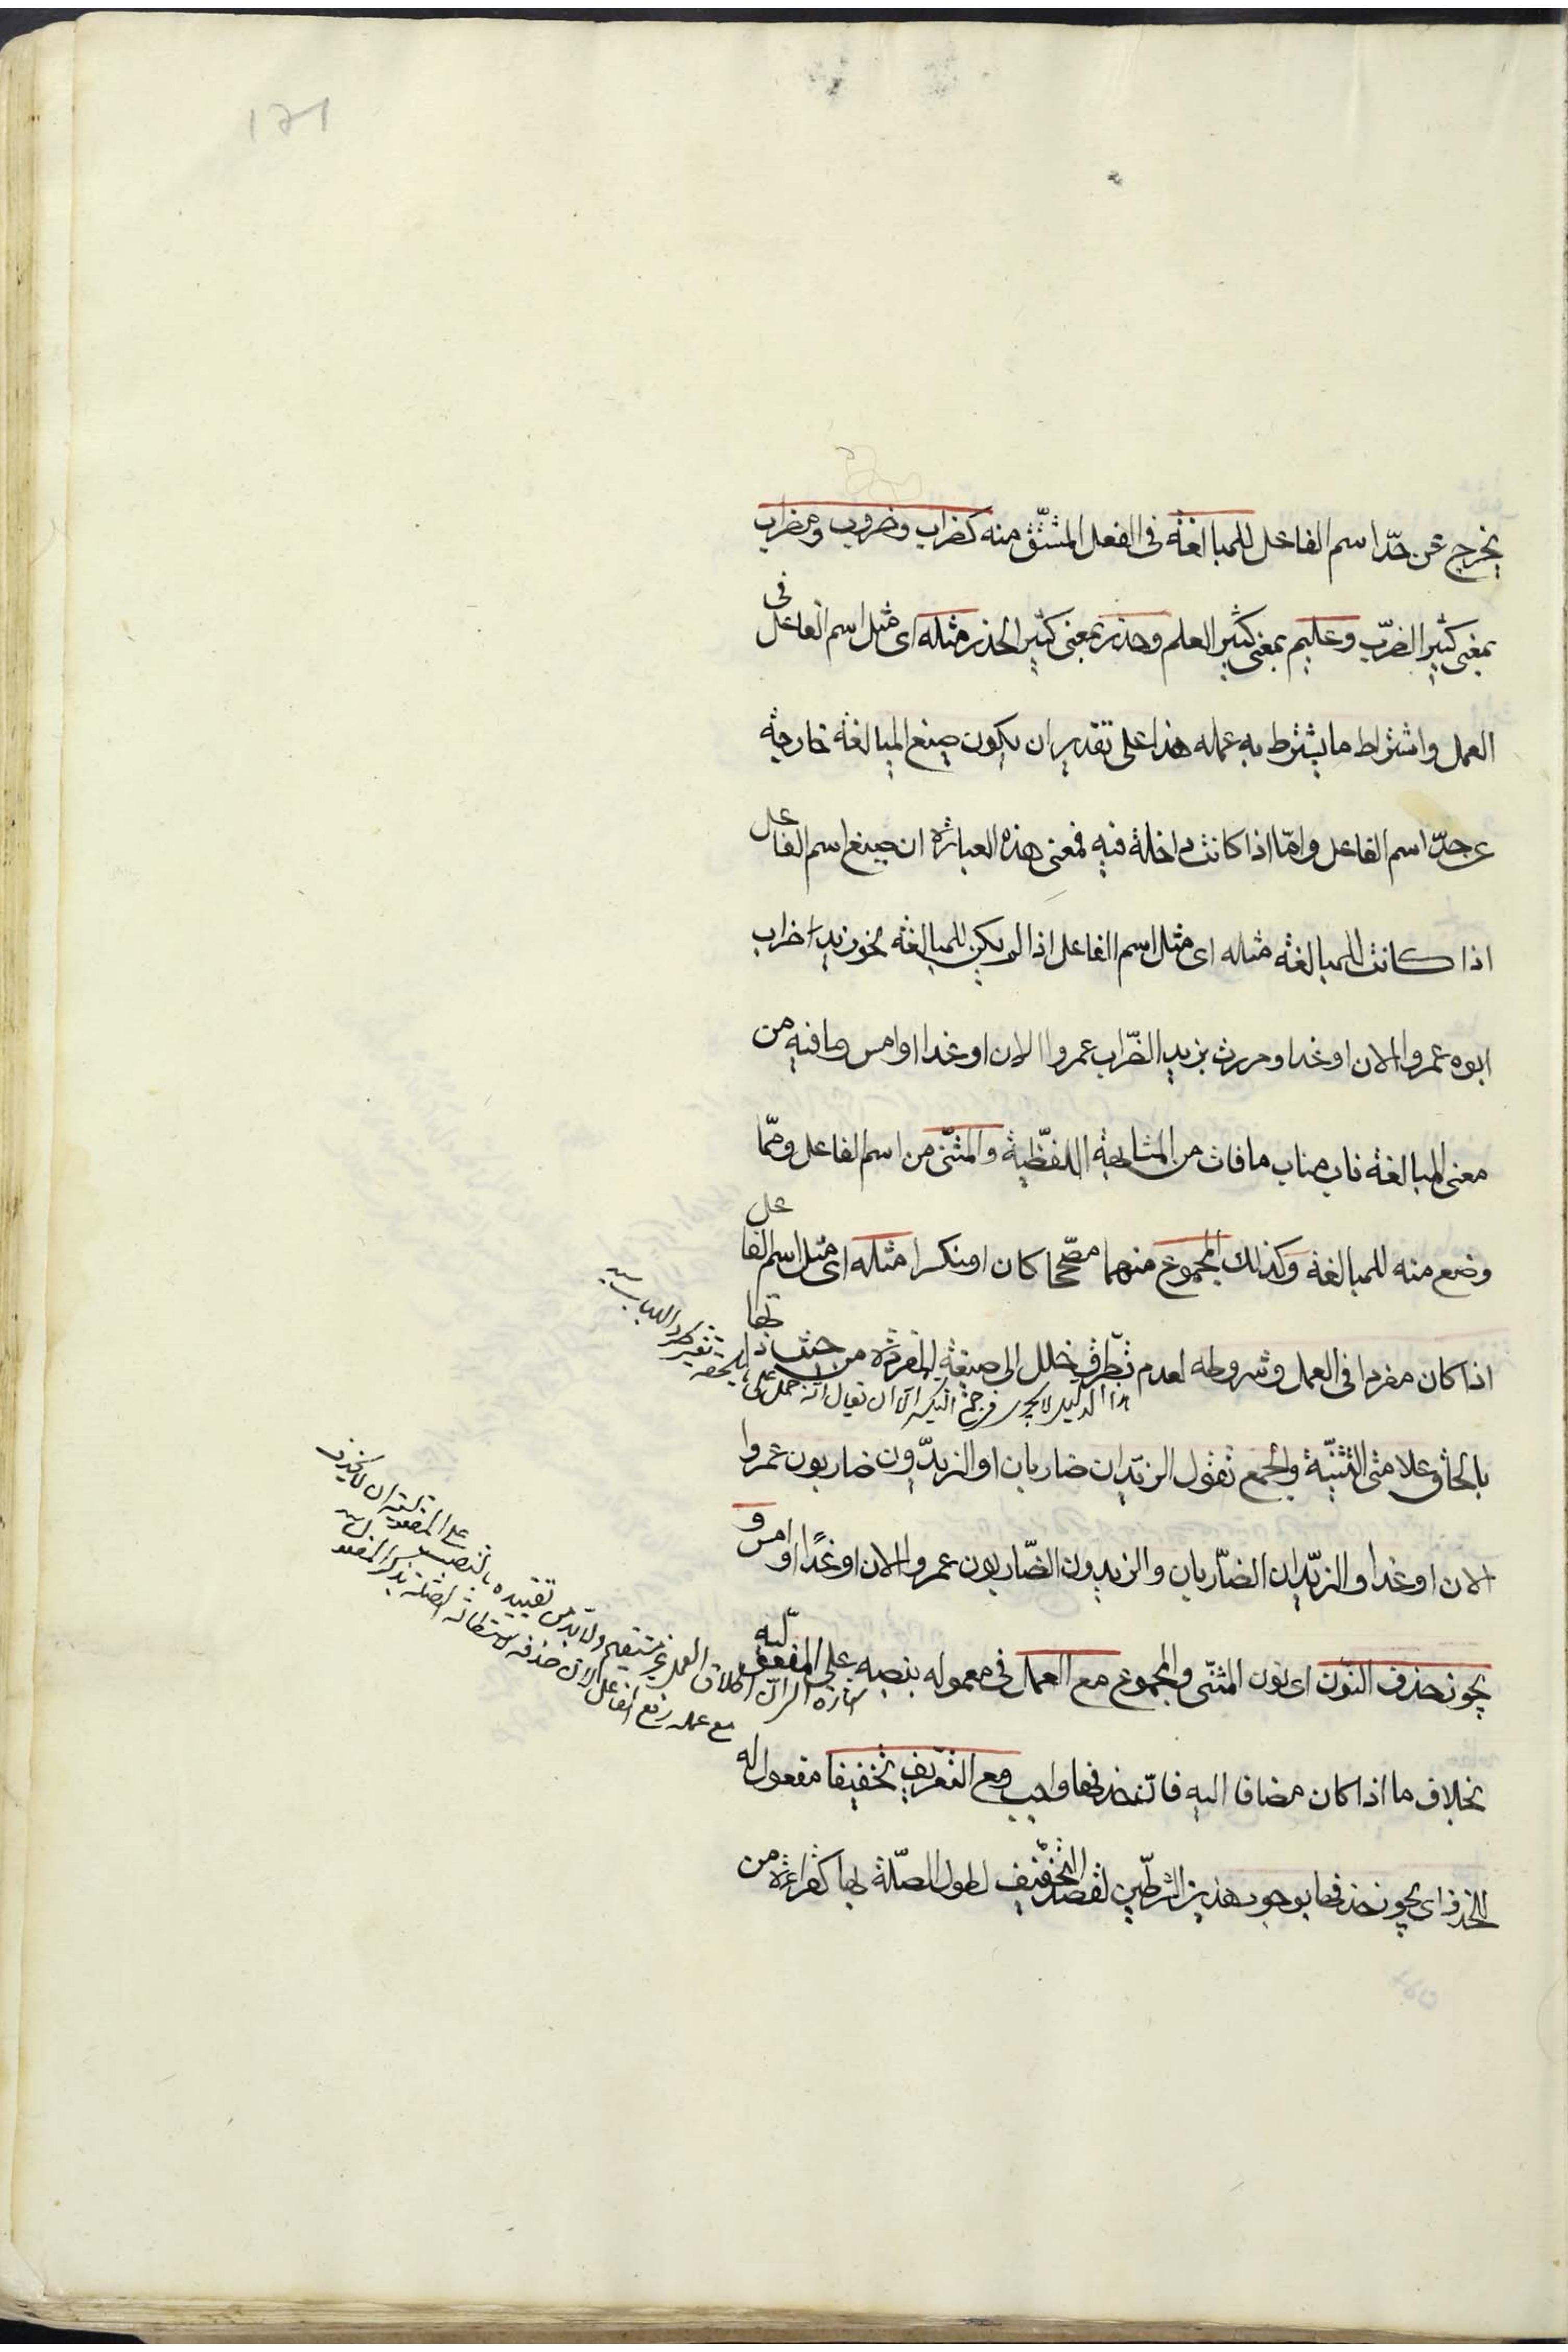 يخرج عن حدّ اسم الفاعل للمبالغة فى الفعل المشتّق منه كضراب وضروب ومضراب
بمعنى كثير الضرب وعليم بمعنى كثير العلم وحذر بمعنى كثير الحذر مثله اى مثل اسم الفاعل فى
العمل واشتراط ما يشترط به عمله هذا على تقدير ان يكون صيغ المبالغة خارجة
عن حدّ اسم الفاعل وامّا اذا كانت داخلة فيه فمعنى هذه العبارة ان صيغ اسم الفاعل
اذا كانت للمبالغة مثله اى مثل اسم الفاعل اذا لم يكن للمبالغة نحو زيد اضراب
ابوه عمروا الان او غدا ومررت بزيد الضّراب عمروا الان او غدا او امس وما فيه من
معنى المبالغة ناب مناب ما فات من المشابهة اللفظية والمثنّى من اسم الفاعل وممّا
وضع منه للمبالغة وكذلك المجموع منهما مصّححا كان او مكسرا مثله اى مثل اسم الفاعل
اذا كان مفردا فى العمل وشروطه لعدم تطرّق خلل الى صيغة المفردة من حيث ذاتها
هذا الدليل لا يجرى فى جمع التكسير الا ان يقال انه حمل على
بالحاق علامتى التثنيّة والجمع تقول الزيدان ضاربان او الزيدّون ضاربون عمروا
الان او غدا والزيدّان الضّاربان والزيدون الضّاربون عمروا الان او غدًا او امس و
يجوز حذف النّون اى نون المثنّى والمجموع مع العمل فى معموله بنصبه على المفعوليّة
بخلاف ما اذا كان مضافا اليه فانّ حذفها واجب ومع التعريف تخفيفا مفعول له
للحذف اى يجوز حذفها بوجود هذين الشرطّين لقصد التخفّيف لطول الصّلة بها كقراءة من
اشارة الى ان اطلاق العمل غير مستقيم ولا بد من تقييده بالنصب على المفعولية
مع عمله رفع الفاعل